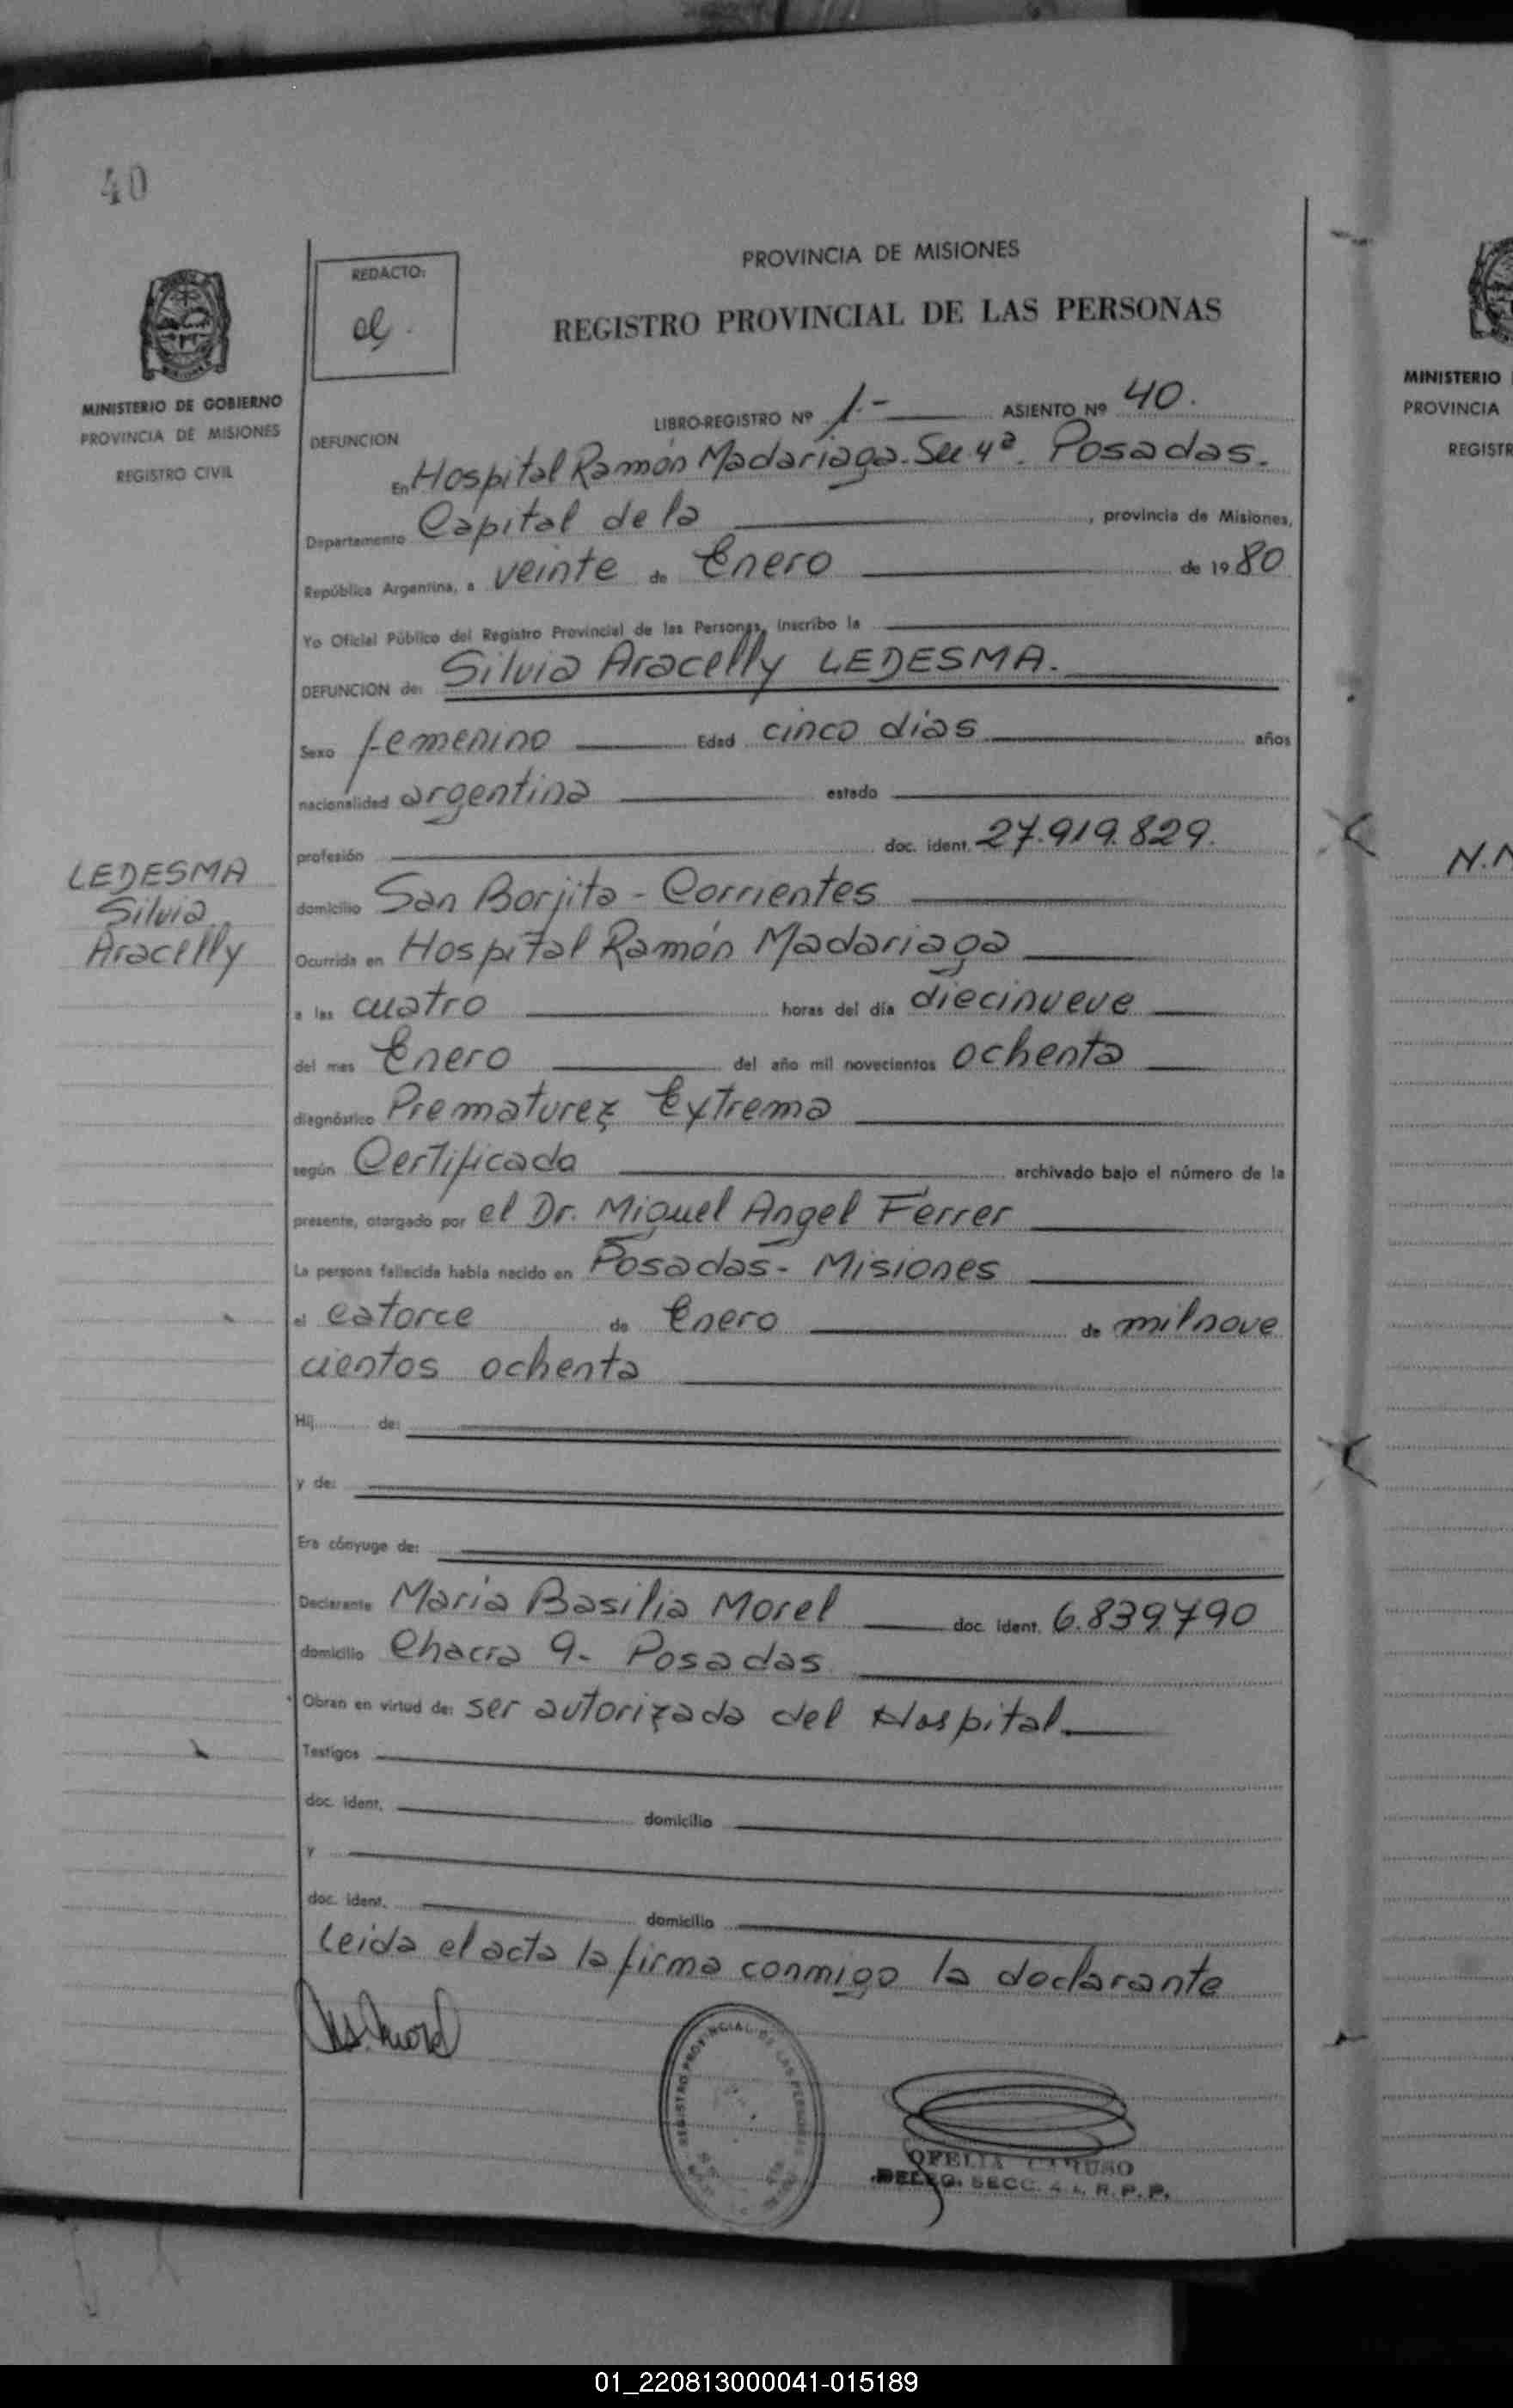 40
PROVINCIA DE MISIONES
REDACTO:
REGISTRO PROVINCIAL DE LAS PERSONAS
MINISTERIO DE GOBIERNO
PROVINCIA DE MISIONES
REGISTRO CIVIL
LIBRO-REGISTRO Nº 1.- ASIENTO Nº 40.
DEFUNCION
En Hospital Ramón Madariaga. Sec 4ª. Posadas.
Departamento Capital de la , provincia de Misiones,
República Argentina, a veinte de Enero de 1980
Yo Oficial Público del Registro Provincial de las Personas, inscribo la
DEFUNCION de: Silvia Aracelly LEDESMA.
Sexo femenino Edad cinco dias años
nacionalidad argentina estado
profesión doc. ident. 27.919.829.
LEDESMA
Silvia
Aracelly
domicilio San Borjita - Corrientes
Ocurrida en Hospital Ramón Madariaga
a las cuatro horas del día diecinueve
del mes Enero del año mil novecientos ochenta
diagnóstico Prematurez Extrema
según Certificado archivado bajo el número de la
presente, otorgado por el Dr. Miguel Angel Ferrer
La persona fallecida había nacido en Posadas - Misiones
el catorce de Enero de milnove
cientos ochenta
Hij de:
y de:
Era cónyuge de:
Declarante María Basilia Morel doc. ident. 6.839.790
domicilio Chacra 9- Posadas
Obran en virtud de: ser autorizada del Hospital
Testigos
doc. ident. domicilio
y
doc. ident. domicilio
Leida el acta la firma conmigo la declarante
REGISTRO PROVINCIAL DE LAS PERSONAS
OFELIA CARUSO
DELEG. SECC. 4a. R.P.P.
MINISTERIO
PROVINCIA
REGISTR
N.N
01_220813000041-015189